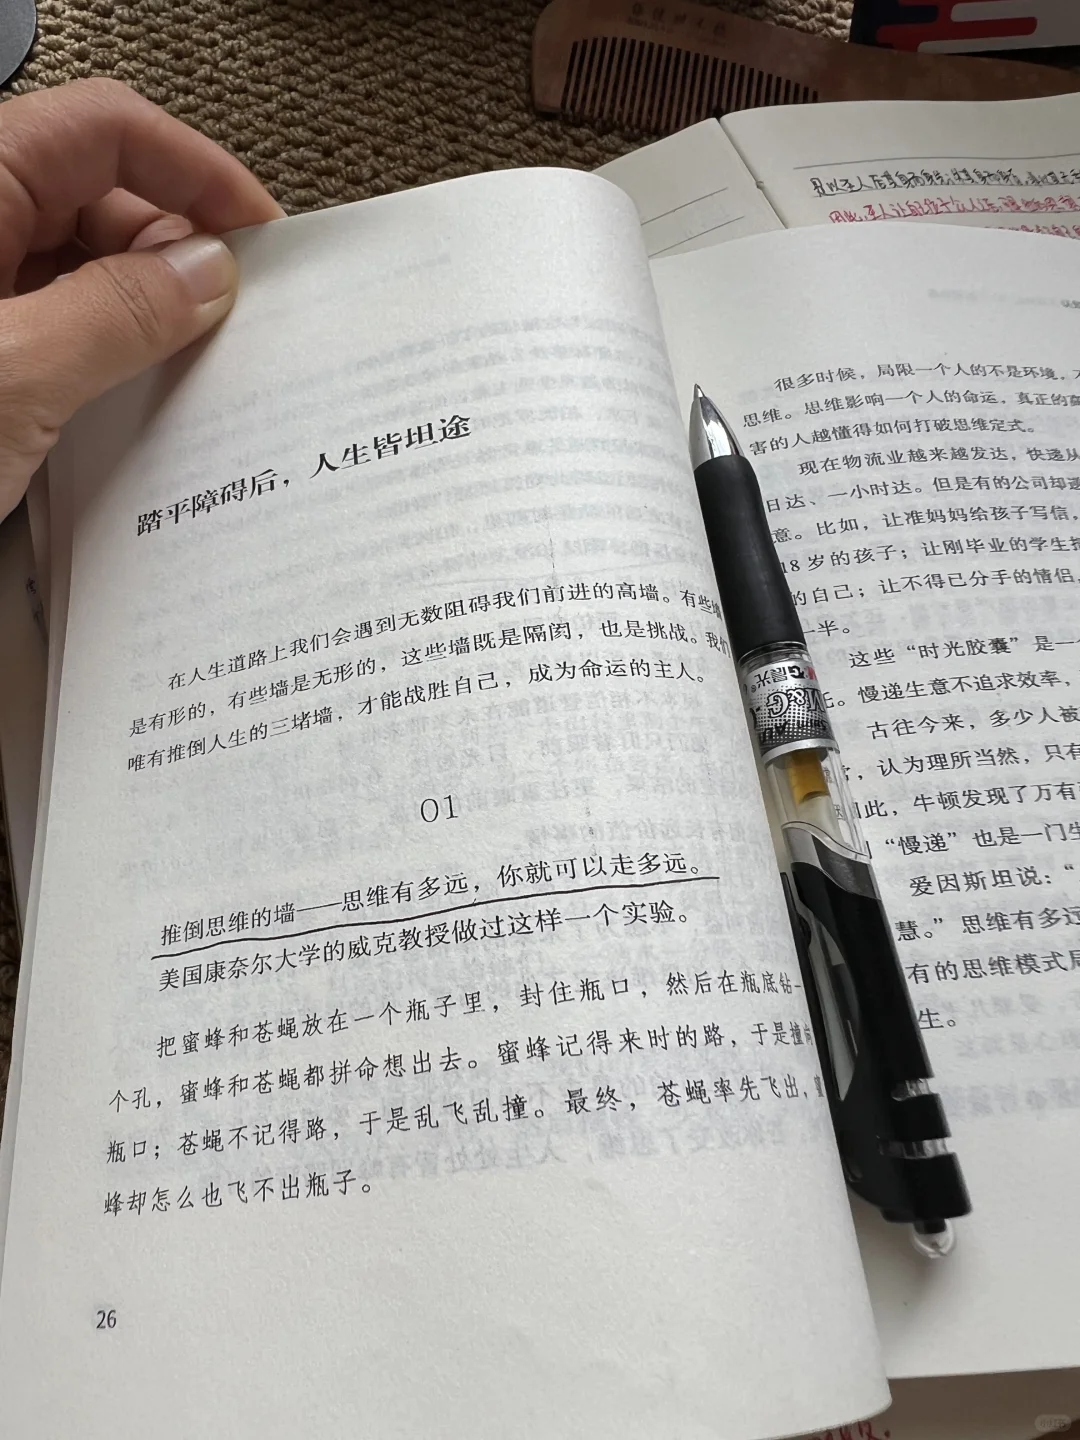 踏平障碍后，人生皆坦途
在人生道路上我们会遇到无数阻碍我们前进的高墙。有些墙
是有形的，有些墙是无形的，这些墙既是隔阂，也是挑战。我们
唯有推倒人生的三堵墙，才能战胜自己，成为命运的主人。
01
推倒思维的墙——思维有多远，你就可以走多远。
美国康奈尔大学的威克教授做过这样一个实验。
把蜜蜂和苍蝇放在一个瓶子里，封住瓶口，然后在瓶底钻一
个孔，蜜蜂和苍蝇都拼命想出去。蜜蜂记得来时的路，于是撞向
瓶口；苍蝇不记得路，于是乱飞乱撞。最终，苍蝇率先飞出，蜜
蜂却怎么也飞不出瓶子。
26
很多时候，局限一个人的不是环境，
思维。思维影响一个人的命运，真正的
害的人越懂得如何打破思维定式。
现在物流业越来越发达，快递从
日达、一小时达。但是有的公司却
意。比如，让准妈妈给孩子写信，
18岁的孩子；让刚毕业的学生
的自己；让不得已分手的情侣，
一半。
这些“时光胶囊”是一
。慢递生意不追求效率，
古往今来，多少人被
，认为理所当然，只有
此，牛顿发现了万有
“慢递”也是一门生
爱因斯坦说：“
慧。”思维有多远
有的思维模式局
生。
M&G晨光